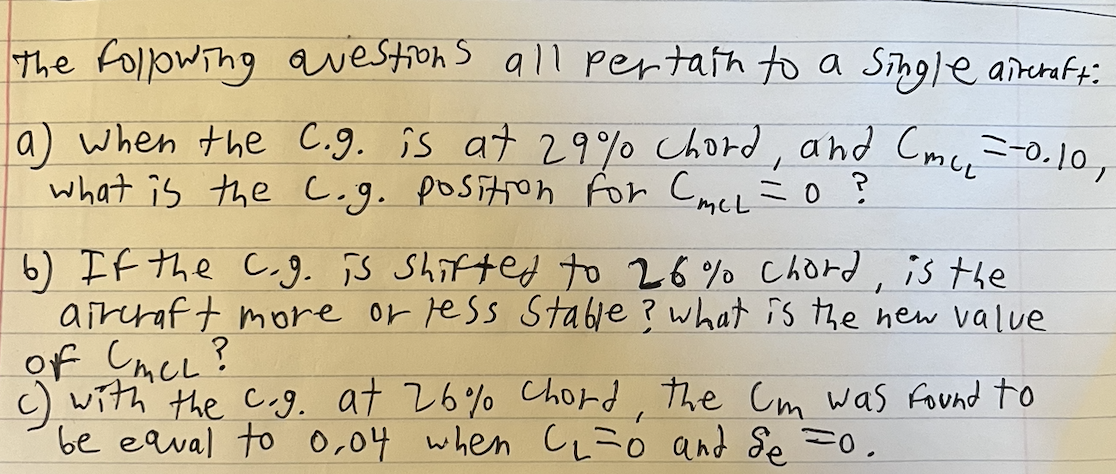 The following questions all pertain to a single aircraft:
a) when the C.g. is at 29% chord, and CmCL =-0.10,
what is the C.g. position for CmCL = 0 ?
b) If the C.g. is shifted to 26% chord, is the
aircraft more or less stable? what is the new value
of CmCL?
c) with the c.g. at 26% chord, the Cm was found to
be equal to 0.04 when CL=0 and δe =0.